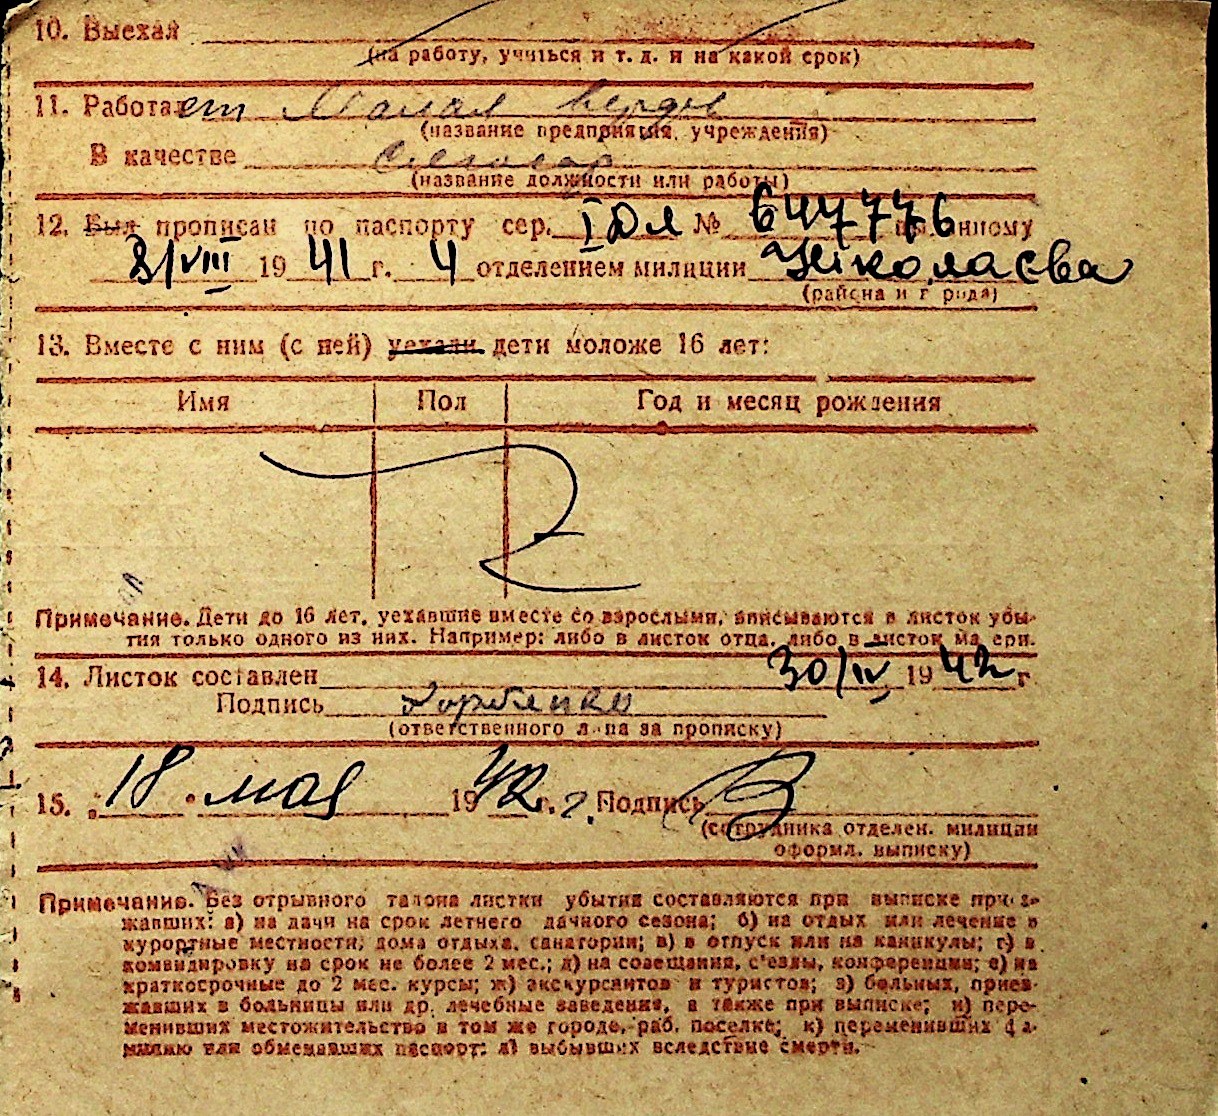 10. Выехал
(на работу, учиться и т. д. и на какой срок)
11. Работает
(название предприятия, учреждения)
В качестве Слесаря
(название должности или работы)
12. Был прописан по паспорту сер. I ДЛ № 647776 выданному
3/VIII 1941 г. 4 отделением милиции Николаева
(района и города)
13. Вместе с ним (с ней) уехали дети моложе 16 лет:
Имя Пол Год и месяц рождения
Примечание. Дети до 16 лет, уехавшие вместе со взрослыми, вписываются в листок убы-
тия только одного из них. Например: либо в листок отца, либо в листок матери.
14. Листок составлен 30/IV 1942 г.
Подпись
(ответственного лица за прописку)
15. „18" мая 1942 г. г. Подпись
(сотрудника отделен. милиции
оформл. выписку)
Примечание. Без отрывного талона листки убытия составляются при выписке приез-
жавших: а) на дачи на срок летнего дачного сезона; б) на отдых или лечение в
курортные местности, дома отдыха, санатории; в) в отпуск или на каникулы; г) в
командировку на срок не более 2 мес.; д) на совещания, с'езды, конференции; е) на
краткосрочные до 2 мес. курсы; ж) экскурсантов и туристов; з) больных, приез-
жавших в больницы или др. лечебные заведения, а также при выписке; и) пере-
менивших местожительство в том же городе, раб. поселке; к) переменивших фа-
милию или обменявших паспорт; л) выбывших вследствие смерти.